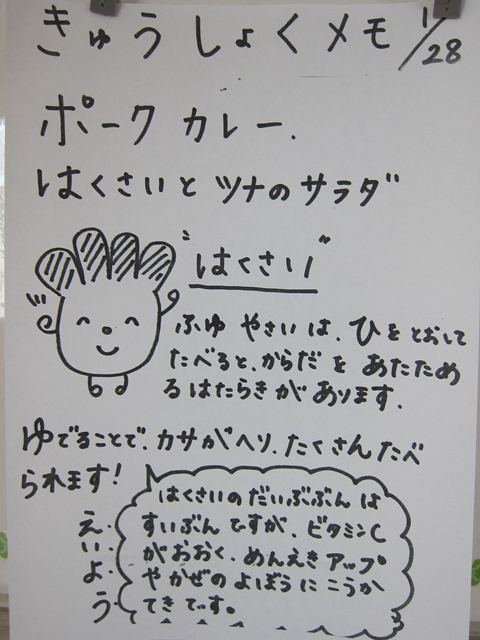 きゅうしょくメモ 1/28
ポークカレー.
はくさいとツナのサラダ
"はくさい"
ふゆ やさいは、ひをとおして
たべると、からだを あたため
るはたらきが あります.
ゆでることで、カサがヘリ、たくさんたべ
られます!
えいよう
はくさいのだいぶぶんは
すいぶんですが、ビタミンC
がおおく、めんえきアップ
やかぜのよぼうにこうか
てきです。